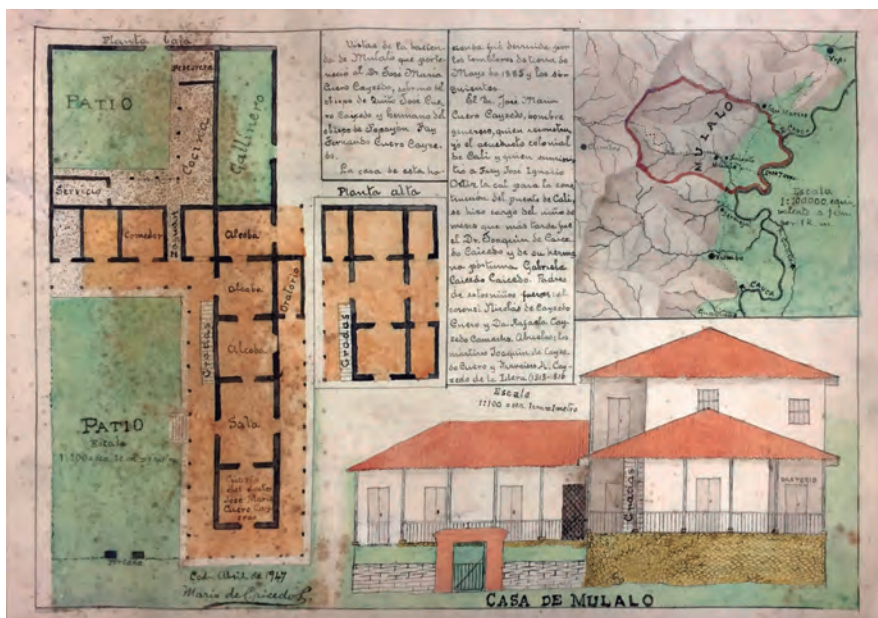 Planta baja
Despensa
PATIO
Cocina
Gallinero
Servicio
Comedor
Zaguan
Alcoba
Alcoba
Oratorio
Alcoba
Gradas
Sala
PATIO
Escala
Cuarto
del
Jose Maria
Cuero Cay
cedo
Cali Abril de 1947
Mario de Caicedo L.
Vistas de la hacien-
da de Mulalo que perte-
neció al Dr. José Maria
Cuero Cayzedo, sobrino del
obispo de Quito José Cue-
ro Caicedo y hermano del
obispo de Popayan Fray
Fernando Cuero Cayze-
do.
La casa de esta ha-
cienda fué destruida por
los temblores de tierra de
Mayo de 1885 y los
siguientes.
El Dr. José Maria
Cuero Cayzedo, hombre
generoso, quien reconstru-
yó el acueducto colonial
de Cali y quien suminis-
tro a Fray José Ignacio
Ortiz la cal para la cons-
trucción del puente de Cali,
se hizo cargo del niño de
meses que más tarde fué
el Dr. Joaquin de Caice-
do Caicedo y de su herma-
na póstuma Gabriela
Caicedo Caicedo. Padres
de estos niños fueron: el
coronel Nicolas de Caycedo
Cuero y Da. Rafaela Cay-
zedo Camacho. Abuelos: los
martires Joaquin de Cayze-
do Cuero y Francisco A. Cay-
zedo de la Llera (1813-1816
Planta alta
Gradas
Escala
MULALO
Yumbo
Cauca
Escala
1:100000 equi-
valente a 1 cm
por 1 k.m.
Gradas
ORATORIO
CASA DE MULALO